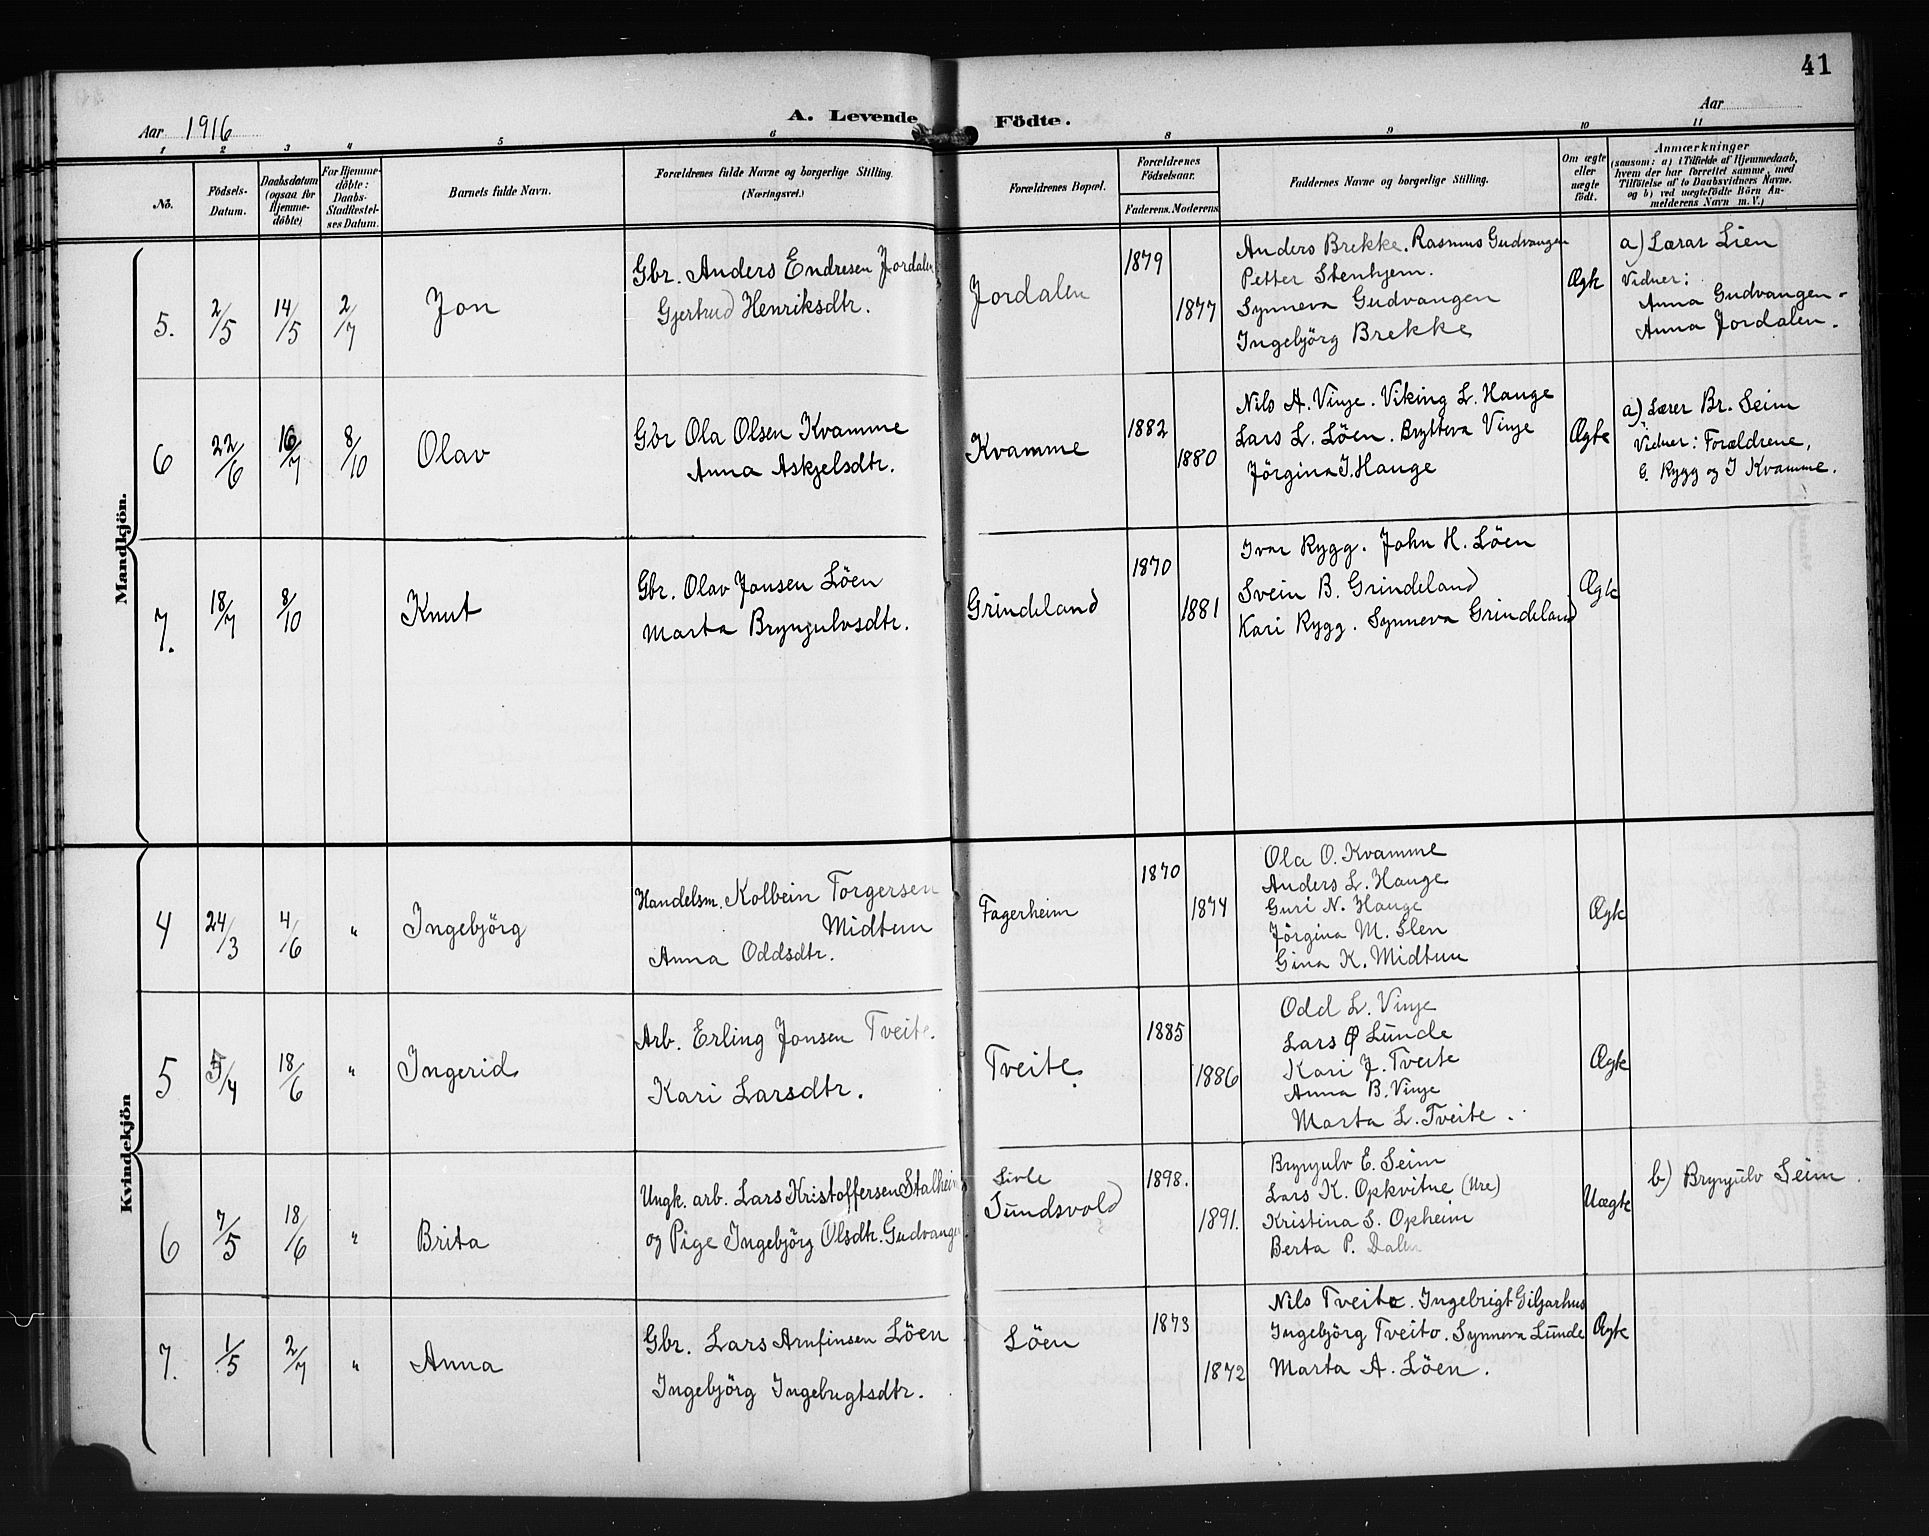 41
Aar 1916
A. Levende Födte.
Aar
1 2 3 4 5 6 8 9 10 11
No.
Födsels-Datum.
Daabsdatum (ogsaa for Hjemmedöbte)
For Hjemmedöbte: Daabs-Stadfestelses Datum.
Barnets fulde Navn.
Forældrenes fulde Navne og borgerlige Stilling. (Næringsvei.)
Forældrenes Bopæl.
Forældrenes Födselsaar.
Faderens. Moderens.
Faddernes Navne og borgerlige Stilling.
Om ægte eller uægte födt.
Anmærkninger
(saasom: a) i Tilfælde af Hjemmedaab, hvem der har forrettet samme, med Tilföielse af to Daabsvidners Navne. og b) ved uægtefödte Börn Anmelderens Navn m. V.)
Mandkjön.
5. 2/5 14/5 2/7 Jon
Gbr. Anders Endresen Jordalen
Gjertrud Henriksdtr.
Jordalen
1879
1877
Anders Brekke. Rasmus Gudvangen
Petter Stenhjem.
Synneva Gudvangen
Ingebjörg Brekke
Ægte
a) Lærar Lien
Vidner:
Anna Gudvangen.
Anna Jordalen.
6 22/6 16/7 8/10 Olav
Gbr Ola Olsen Kvamme
Anna Askjelsdtr.
Kvamme
1882
1880
Nils A. Vinje. Viking L. Hauge
Lars L. Löen. Brytteva Vinje
Jörgina I. Hauge
Ægte
a) Lærer Br. Seim
Vidner: Forældrene,
G. Rygg og I Kvamme.
7. 18/7 8/10 Knut
Gbr. Olav Jonsen Löen
Marta Brynjulvsdtr.
Grindeland
1870
1881
Ivar Rygg. John H. Löen
Svein B. Grindeland
Kari Rygg. Synneva Grindeland
Ægte
Kvindekjön
4 24/3 4/6 " Ingebjörg
Handelsm. Kolbein Torgersen
Midtun
Anna Oddsdtr.
Fagerheim
1870
1874
Ola O. Kvamme
Anders L. Hauge
Guri N. Hauge
Jörgina M. Slen
Gina K. Midtun
Ægte
5 5/4 18/6 " Ingerid
Arb. Erling Jonsen Tveite.
Kari Larsdtr.
Tveite
1885
1886
Odd L. Vinje
Lars Ø Lunde
Kari J. Tveite
Anna B. Vinje
Marta L. Tveite.
Ægte
6 7/5 18/6 " Brita
Ungk. arb. Lars Kristoffersen Stalheim
og Pige Ingebjörg Olsdtr. Gudvangen
Sivle
Sundsvold
1898.
1891.
Brynjulv E. Seim
Lars K. Opkvitne (Ure)
Kristina S. Opheim
Berta P. Dalen
Uægte
b) Brynjulv Seim.
7. 1/5 2/7 " Anna
Gbr. Lars Arnfinsen Löen
Ingebjörg Ingebrigtsdtr.
Löen
1873
1872
Nils Tveite. Ingebrigt Giljarhus
Ingebjörg Tveito. Synneva Lunde
Marta A. Löen.
Ægte